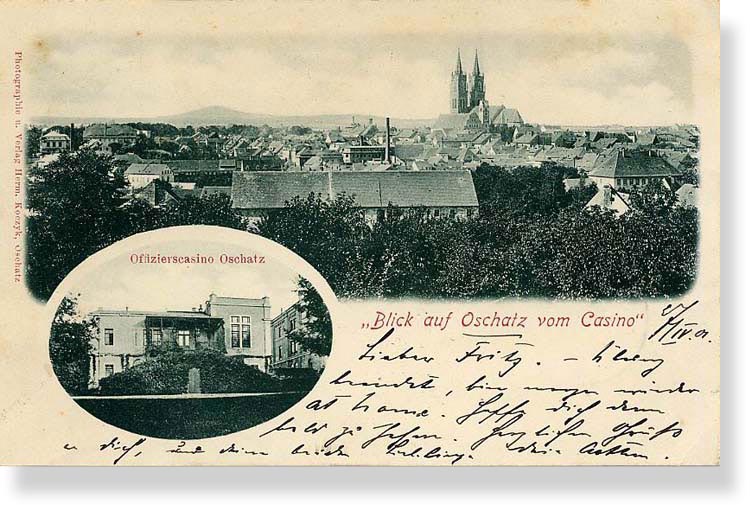 Photographie u. Verlag Herm. Koczyk, Oschatz
Offizierscasino Oschatz
„Blick auf Oschatz vom Casino“
Lieber Fritz. – Übung
beendet, bin morgen wieder
at home. Hoffe dich dann
bald zu sehen. Herzlichen Gruss
an dich, und deine beiden Lieblinge. Dein